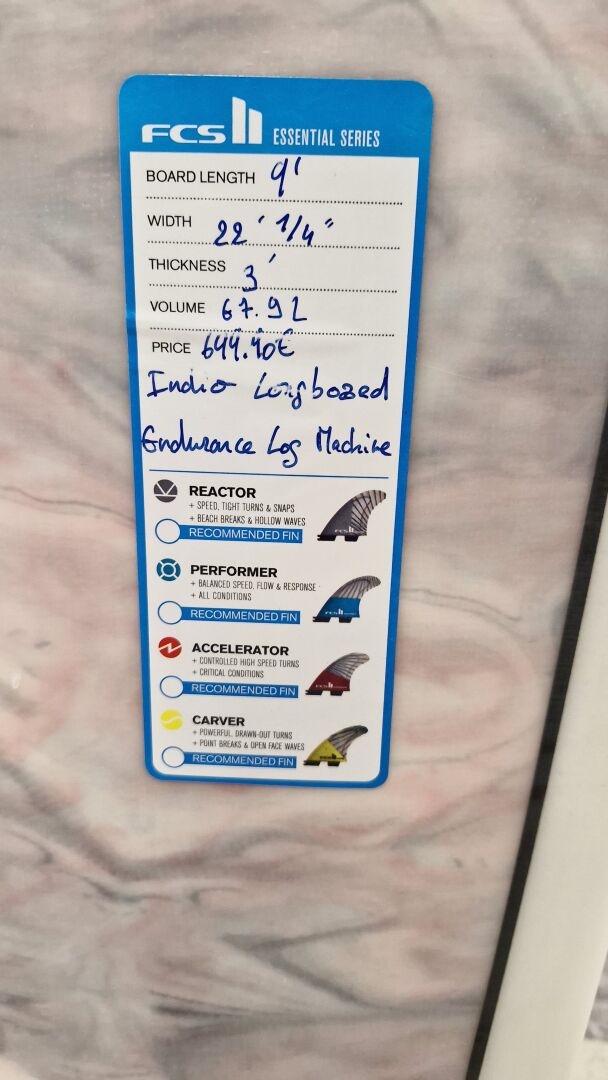 FCS II ESSENTIAL SERIES
BOARD LENGTH 9'
WIDTH 22' 1/4"
THICKNESS 3'
VOLUME 67.9 L
PRICE 644.40€
Indio Longboard
Endurance Log Machine
REACTOR
+ SPEED, TIGHT TURNS & SNAPS
+ BEACH BREAKS & HOLLOW WAVES
RECOMMENDED FIN
FCS II
PERFORMER
+ BALANCED SPEED, FLOW & RESPONSE
+ ALL CONDITIONS
RECOMMENDED FIN
FCS II
ACCELERATOR
+ CONTROLLED HIGH SPEED TURNS
+ CRITICAL CONDITIONS
RECOMMENDED FIN
FCS II
CARVER
+ POWERFUL, DRAWN-OUT TURNS
+ POINT BREAKS & OPEN FACE WAVES
RECOMMENDED FIN